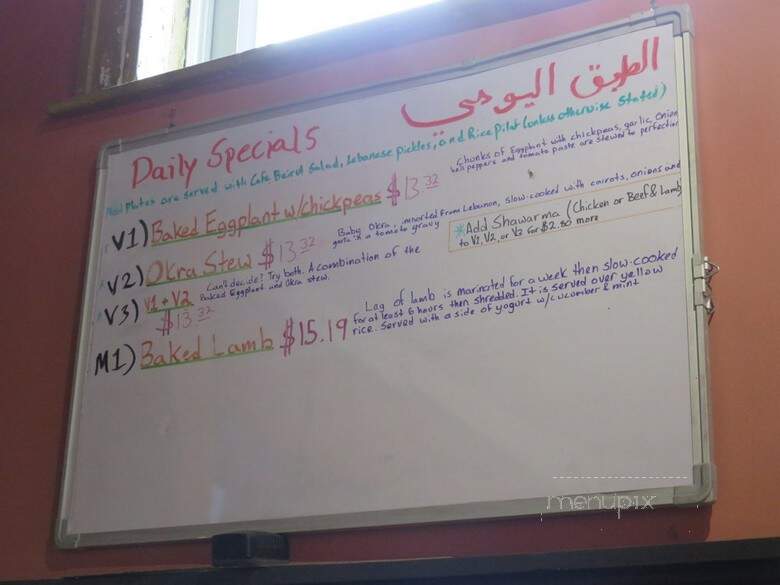 الطبق اليومي
Daily Specials
Plates are served with Cafe Beirut Salad, Lebanese pickles, and Rice Pilaf (unless otherwise stated)
V1) Baked Eggplant w/chickpeas $13.32
Chunks of Eggplant with chickpeas, garlic, onion
bell peppers and tomato paste are stewed to perfection
V2) Okra Stew $13.32
Baby Okra, imported from Lebanon, slow-cooked with carrots, onions and
garlic in a tomato gravy
*Add Shawarma (Chicken or Beef & Lamb)
to V1, V2, or V3 for $2.80 more
V3) V1 + V2
$13.32
Can't decide? Try both. A combination of the
Baked Eggplant and Okra stew.
M1) Baked Lamb $15.19
Leg of lamb is marinated for a week then slow-cooked
for at least 6 hours then shredded. It is served over yellow
rice. Served with a side of yogurt w/cucumber & mint
menupix